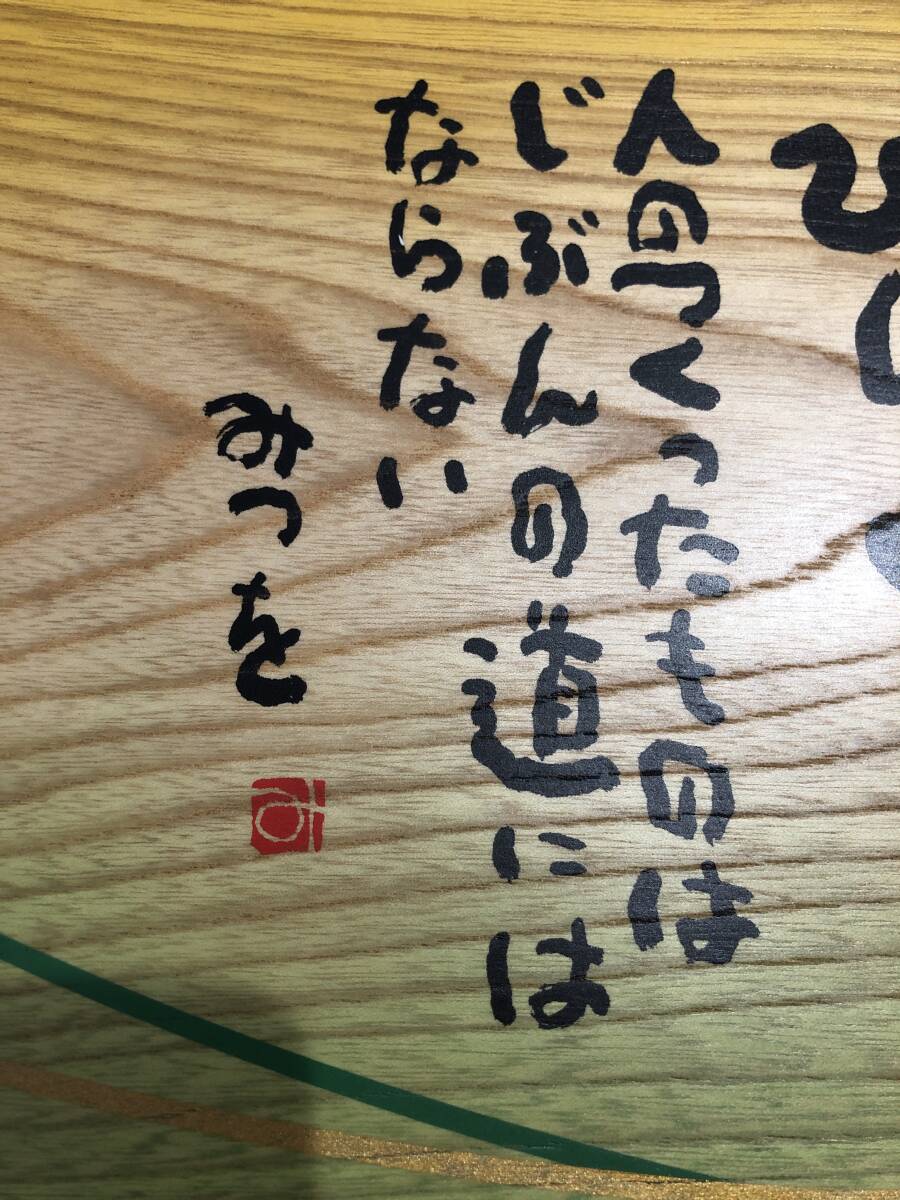 人のつくったものは
じぶんの道には
ならない
みつを